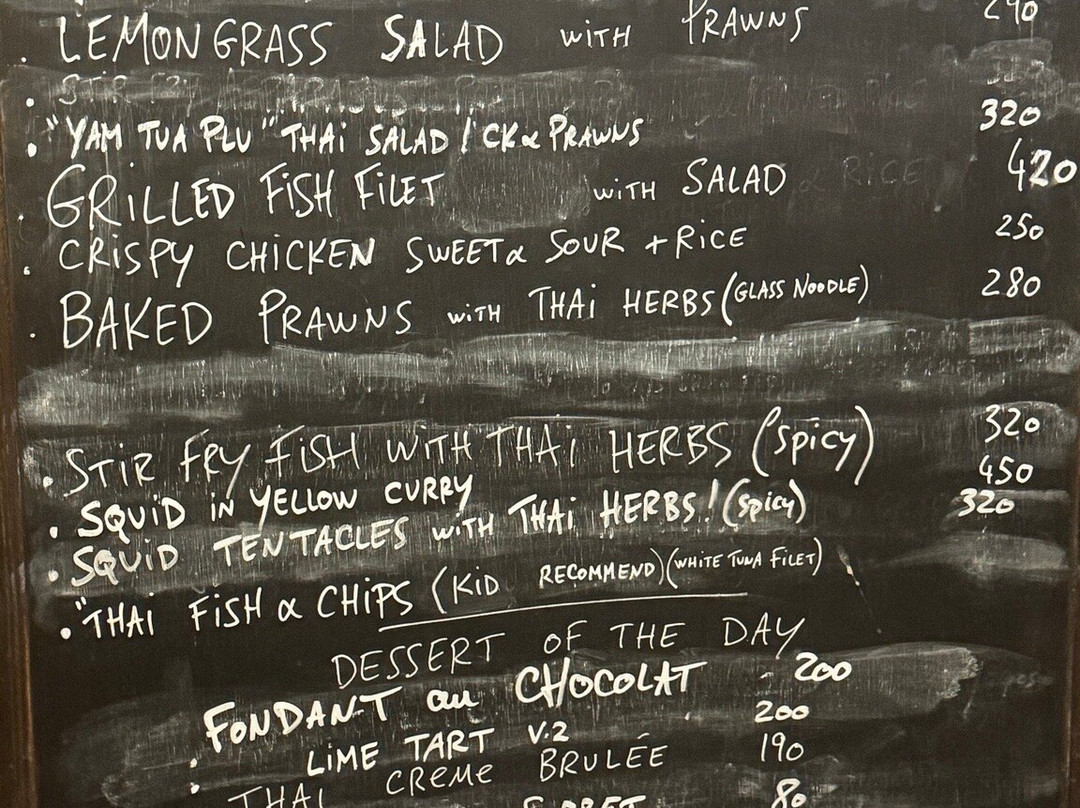 . LEMONGRASS SALAD WITH PRAWNS 290
• STIR FRY
• "YAM TUA PLU" THAI SALAD / CK & PRAWNS 320
. GRILLED FISH FILET WITH SALAD & RICE 420
. CRISPY CHICKEN SWEET & SOUR + RICE 250
. BAKED PRAWNS WITH THAI HERBS (GLASS NOODLE) 280
• STIR FRY FISH WITH THAI HERBS (SPICY) 320
• SQUID IN YELLOW CURRY 450
• SQUID TENTACLES WITH THAI HERBS! (SPICY) 320
• "THAI FISH & CHIPS (KID RECOMMEND) (WHITE TUNA FILET)
DESSERT OF THE DAY
FONDANT au CHOCOLAT - 200
• LIME TART V.2 200
• THAI CREME BRULÉE 190
80